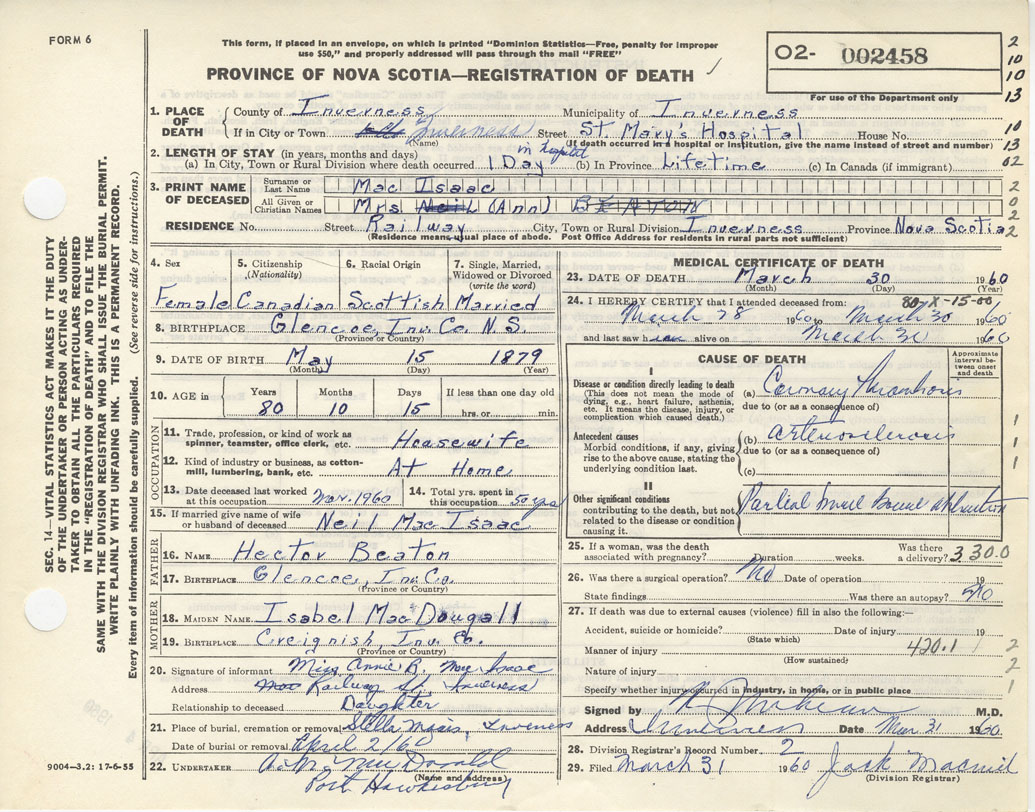 FORM 6
This form, if placed in an envelope, on which is printed "Dominion Statistics—Free, penalty for improper
use $50," and properly addressed will pass through the mail "FREE"
PROVINCE OF NOVA SCOTIA—REGISTRATION OF DEATH
02- 002458
For use of the Department only
2
10
10
13
10
13
02
2
0
2
2
SEC. 14—VITAL STATISTICS ACT MAKES IT THE DUTY
OF THE UNDERTAKER OR PERSON ACTING AS UNDER-
TAKER TO OBTAIN ALL THE PARTICULARS REQUIRED
IN THE "REGISTRATION OF DEATH" AND TO FILE THE
SAME WITH THE DIVISION REGISTRAR WHO SHALL ISSUE THE BURIAL PERMIT.
WRITE PLAINLY WITH UNFADING INK. THIS IS A PERMANENT RECORD.
Every item of information should be carefully supplied. (See reverse side for instructions.)
1. PLACE OF DEATH County of Inverness Municipality of Inverness
If in City or Town Inverness Street St. Mary's Hospital House No.
(Name) (If death occurred in a hospital or institution, give the name instead of street and number)
2. LENGTH OF STAY (in years, months and days) in hospital
(a) In City, Town or Rural Division where death occurred 1 Day (b) In Province Lifetime (c) In Canada (if immigrant)
3. PRINT NAME OF DECEASED Surname or Last Name Mac Isaac
All Given or Christian Names Mrs. Neil (Ann) BEATON
RESIDENCE No. Street Railway City, Town or Rural Division Inverness Province Nova Scotia
(Residence means usual place of abode. Post Office Address for residents in rural parts not sufficient)
4. Sex 5. Citizenship (Nationality) 6. Racial Origin 7. Single, Married, Widowed or Divorced (write the word)
Female Canadian Scottish Married
8. BIRTHPLACE Glencoe, Inv. Co. N.S.
(Province or Country)
9. DATE OF BIRTH May 15 1879
(Month) (Day) (Year)
10. AGE in Years Months Days If less than one day
80 10 15 hrs. or min.
OCCUPATION
11. Trade, profession, or kind of work as spinner, teamster, office clerk, etc. Housewife
12. Kind of industry or business, as cotton-mill, lumbering, bank, etc. At Home
13. Date deceased last worked at this occupation Mar. 1960 14. Total yrs. spent in this occupation 50 yrs
15. If married give name of wife or husband of deceased Neil Mac Isaac
FATHER
16. NAME Hector Beaton
17. BIRTHPLACE Glencoe, Inv. Co.
(Province or Country)
MOTHER
18. MAIDEN NAME Isabel Mac Dougall
19. BIRTHPLACE Creignish, Inv. Co.
(Province or Country)
20. Signature of informant Miss Annie B. Mac Isaac
Address Railway St. Inverness
Relationship to deceased Daughter
21. Place of burial, cremation or removal Stella Maris, Inverness
Date of burial or removal April 2/60
22. UNDERTAKER A. M. MacDonald
(Name and address)
Port Hawkesbury
9004—3.2: 17-6-55
MEDICAL CERTIFICATE OF DEATH
23. DATE OF DEATH March 30 1960
(Month) (Day) (Year)
24. I HEREBY CERTIFY that I attended deceased from:
March 28 1960 to March 30 1960
and last saw h alive on March 30 1960
CAUSE OF DEATH
Approximate interval between onset and death
I
Disease or condition directly leading to death
(This does not mean the mode of dying, e.g., heart failure, asthenia, etc. It means the disease, injury, or complication which caused death.)
(a) Coronary Thrombosis
due to (or as a consequence of)
Antecedent causes
Morbid conditions, if any, giving rise to the above cause, stating the underlying condition last.
(b) arteriosclerosis
due to (or as a consequence of)
(c)
1
1
1
II
Other significant conditions
contributing to the death, but not related to the disease or condition causing it.
Partial Small Bowel obstruction
25. If a woman, was the death associated with pregnancy? Duration weeks. Was there a delivery? 3 30.0
26. Was there a surgical operation? No Date of operation 19
State findings Was there an autopsy? No
27. If death was due to external causes (violence) fill in also the following:—
Accident, suicide or homicide? Date of injury 19
(State which)
Manner of injury 420.1 1
(How sustained)
Nature of injury
Specify whether injury occurred in industry, in home, or in public place
2
2
1
Signed by M.D.
Address Inverness Date Mar 31 1960
28. Division Registrar's Record Number 2
29. Filed March 31 1960 Jack Macneil
(Division Registrar)